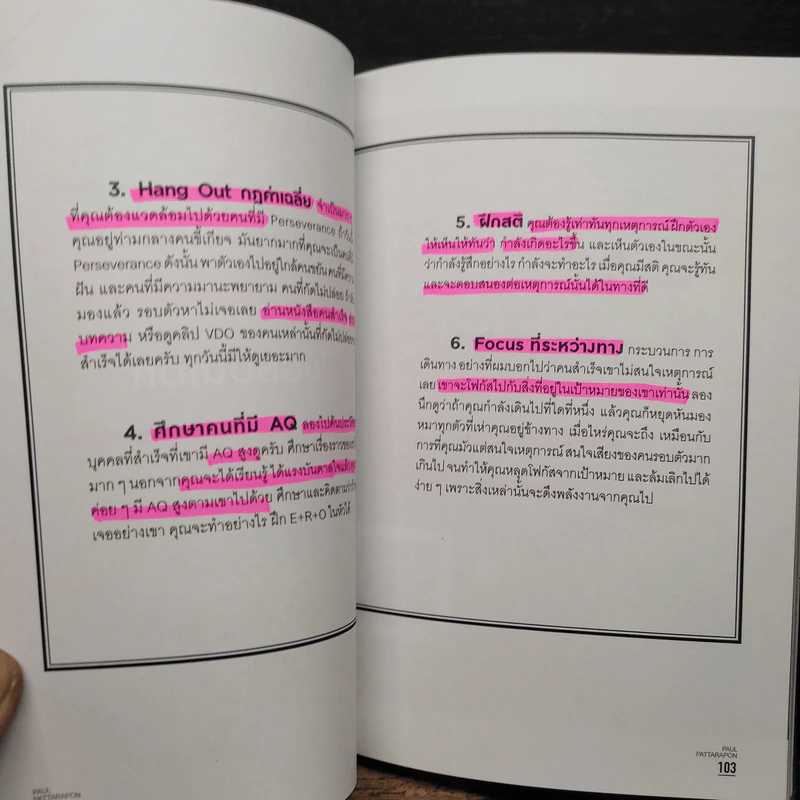 3. Hang Out กฎค่าเฉลี่ย จำเป็นมาก ๆ
ที่คุณต้องแวดล้อมไปด้วยคนที่มี Perseverance ถ้าวันนี้
คุณอยู่ท่ามกลางคนขี้เกียจ มันยากมากที่คุณจะเป็นคนมี
Perseverance ดังนั้น พาตัวเองไปอยู่ใกล้คนขยัน คนที่มีความ
ฝัน และคนที่มีความมานะพยายาม คนที่กัดไม่ปล่อย ถ้า
มองแล้ว รอบตัวหาไม่เจอเลย อ่านหนังสือคนสำเร็จ
บทความ หรือดูคลิป VDO ของคนเหล่านั้นที่กัดไม่ปล่อยจน
สำเร็จได้เลยครับ ทุกวันนี้มีให้ดูเยอะมาก
4. ศึกษาคนที่มี AQ ลองไปค้นประวัติ
บุคคลที่สำเร็จที่เขามี AQ สูงดูครับ ศึกษาเรื่องราวของเขา
มาก ๆ นอกจากคุณจะได้เรียนรู้ ได้แรงบันดาลใจแล้ว
ค่อย ๆ มี AQ สูงตามเขาไปด้วย ศึกษาและคิดตามว่าถ้า
เจออย่างเขา คุณจะทำอย่างไร ฝึก E+R=O ในหัวได้
PAUL
PATTARAPON
5. ฝึกสติ คุณต้องรู้เท่าทันทุกเหตุการณ์ ฝึกตัวเอง
ให้เห็นให้ทันว่า กำลังเกิดอะไรขึ้น และเห็นตัวเองในขณะนั้น
ว่ากำลังรู้สึกอย่างไร กำลังจะทำอะไร เมื่อคุณมีสติ คุณจะรู้ทัน
และจะตอบสนองต่อเหตุการณ์นั้นได้ในทางที่ดี
6. Focus ที่ระหว่างทาง กระบวนการ การ
เดินทาง อย่างที่ผมบอกไปว่าคนสำเร็จเขาไม่สนใจเหตุการณ์
เลย เขาจะโฟกัสไปกับสิ่งที่อยู่ในเป้าหมายของเขาเท่านั้น ลอง
นึกดูว่าถ้าคุณกำลังเดินไปที่ใดที่หนึ่ง แล้วคุณก็หยุดหันมอง
หมาทุกตัวที่เห่าคุณอยู่ข้างทาง เมื่อไหร่คุณจะถึง เหมือนกับ
การที่คุณมัวแต่สนใจเหตุการณ์ สนใจเสียงของคนรอบตัวมาก
เกินไป จนทำให้คุณหลุดโฟกัสจากเป้าหมาย และล้มเลิกไปได้
ง่าย ๆ เพราะสิ่งเหล่านั้นจะดึงพลังงานจากคุณไป
PAUL
PATTARAPON
103